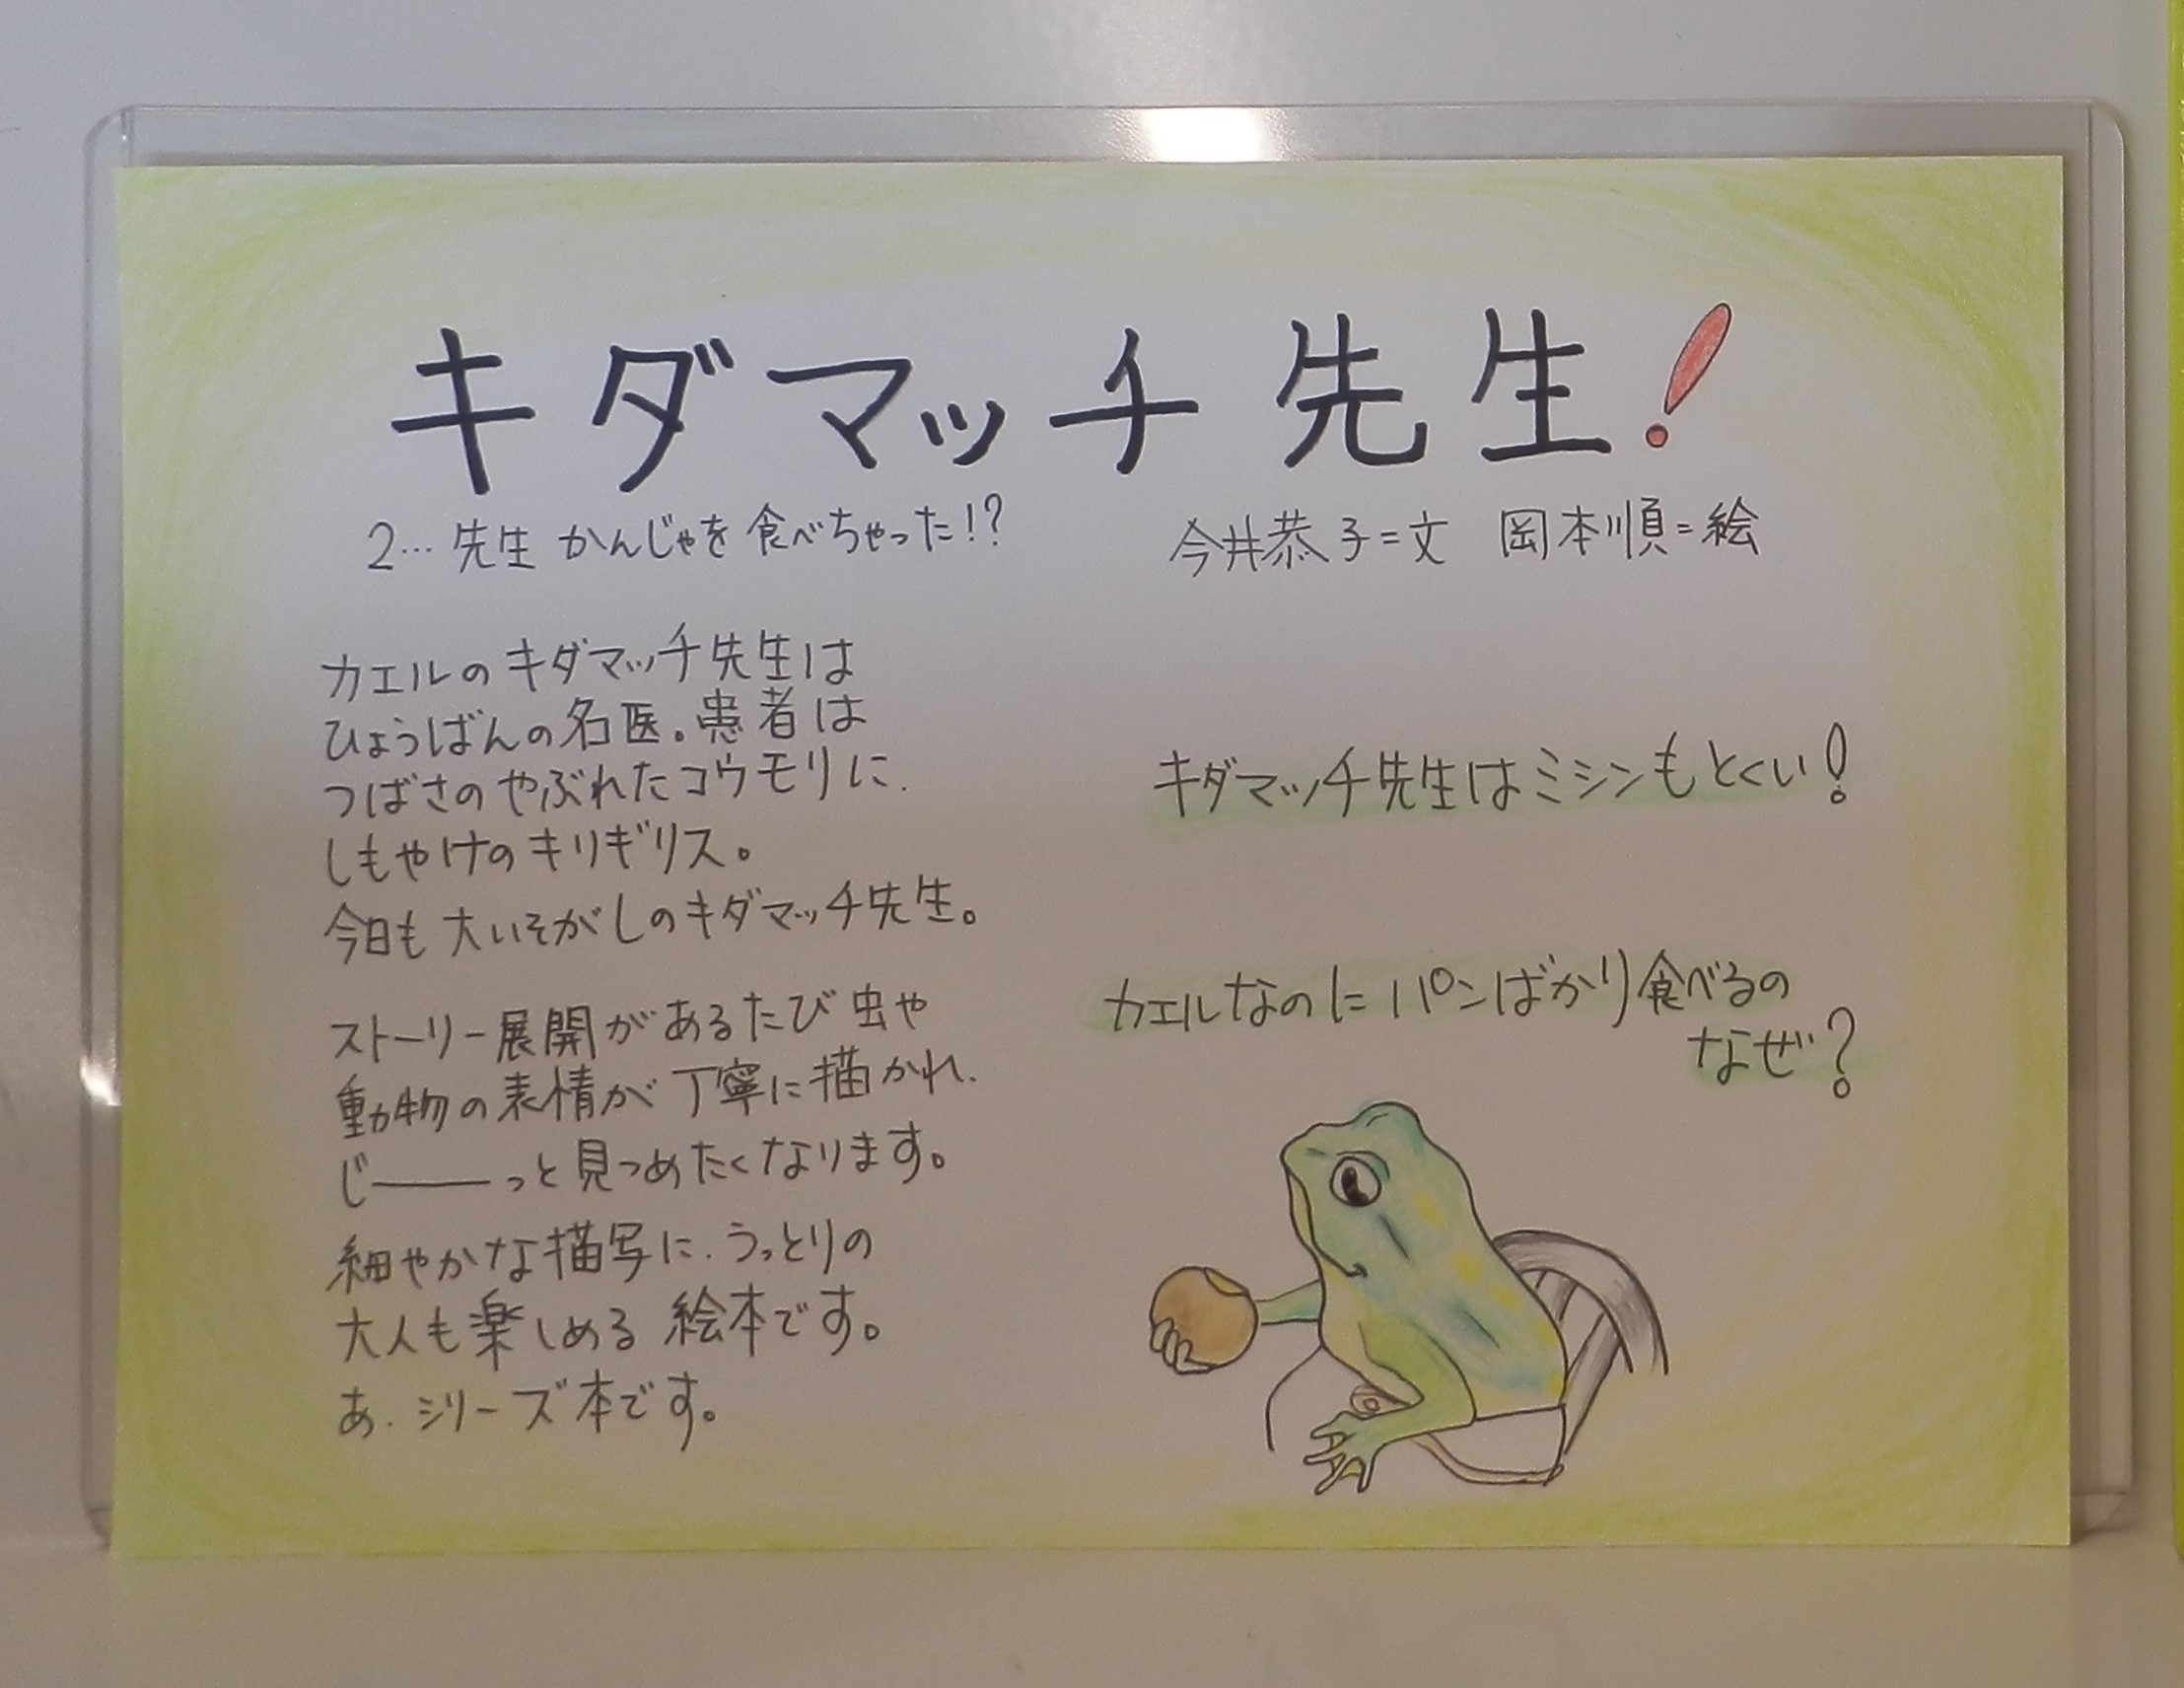 キダマッチ先生!
2…先生 かんじゃを 食べちゃった!?
今井恭子=文 岡本順=絵
カエルの キダマッチ先生は
ひょうばんの名医。患者は
つばさの やぶれたコウモリに、
しもやけの キリギリス。
今日も 大いそがしのキダマッチ先生。
ストーリー展開が あるたび 虫や
動物の 表情が 丁寧に描かれ、
じーーっと 見つめたくなります。
細やかな描写に、うっとりの
大人も楽しめる 絵本です。
あ、シリーズ本です。
キダマッチ先生はミシンもとくい!
カエルなのに パンばかり食べるの
なぜ?